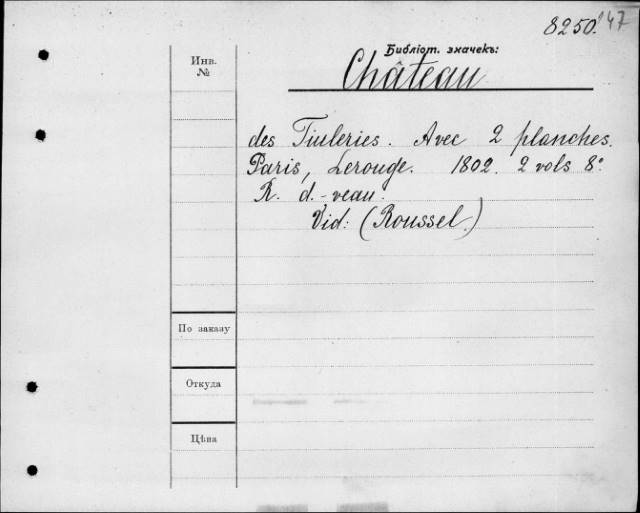 8250. 47
Библіот. значекъ:
Инв.
№
Château
des Tuileries. Avec 2 planches.
Paris, Lerouge. 1802. 2 vols 8°
R. d.-veau.
Vid: (Roussel.)
По заказу
Откуда
Цѣна